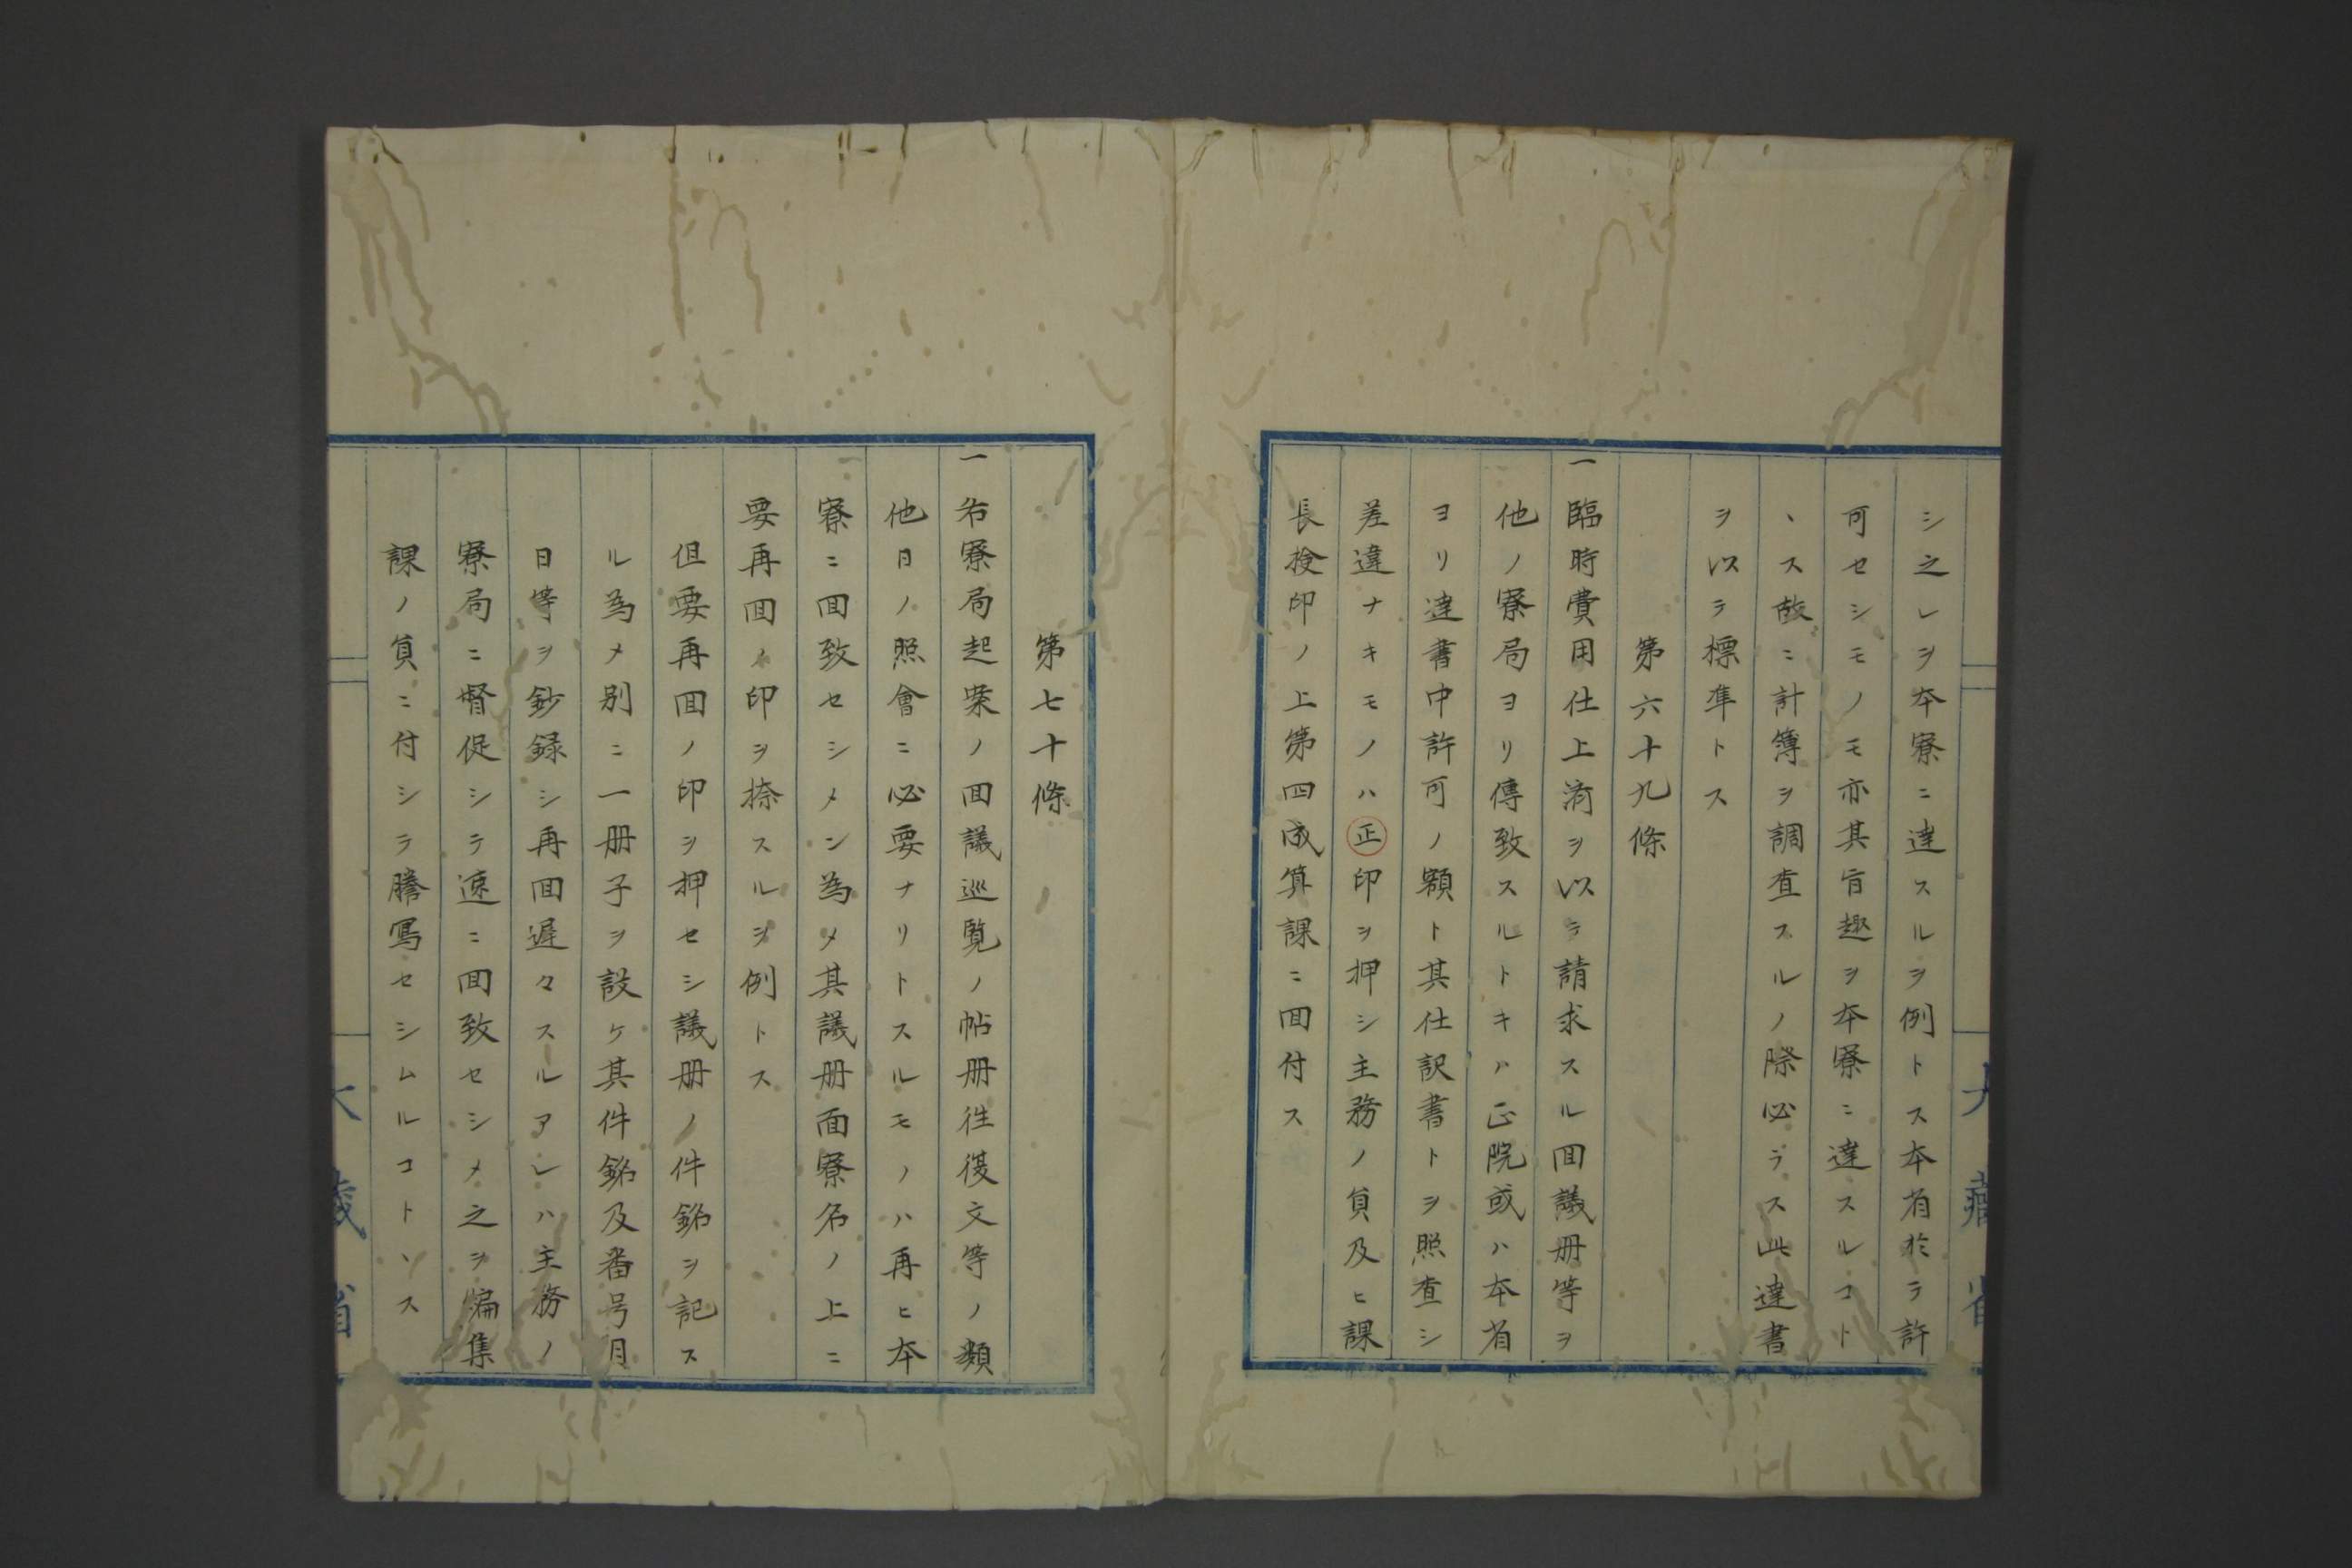 シ之レヲ本寮ニ達スルヲ例トス本省於テ許
可セシモノモ亦其旨趣ヲ本寮ニ達スルコト
ヽス故ニ計簿ヲ調査スルノ際必ラス此達書
ヲ以テ標準トス
第六十九條
一臨時費用仕上済ヲ以テ請求スル回議册等ヲ
他ノ寮局ヨリ傳致スルトキハ正院或ハ本省
ヨリ達書中許可ノ額ト其仕訳書トヲ照査シ
差違ナキモノハ正印ヲ押シ主務ノ負及ヒ課
長撿印ノ上第四成算課ニ回付ス
第七十條
一各寮局起案ノ回議巡覧ノ帖册往復文等ノ類
他日ノ照會ニ必要ナリトスルモノハ再ヒ本
寮ニ回致セシメン為メ其議册面寮名ノ上ニ
要再回ノ印ヲ捺スルヲ例トス
但要再回ノ印ヲ押セシ議册ノ件銘ヲ記ス
ル為メ別ニ一册子ヲ設ケ其件銘及番号月
日等ヲ鈔録シ再回遅々スルアレハ主務ノ
寮局ニ督促シテ速ニ回致セシメ之ヲ編集
課ノ負ニ付シテ騰寫セシムルコトヽス
大藏省